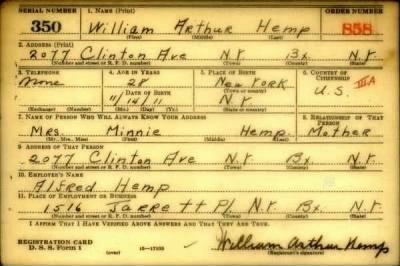 SERIAL NUMBER 1. NAME (Print) ORDER NUMBER
350 William Arthur Hemp 858
(First) (Middle) (Last)
2. ADDRESS (Print)
2077 Clinton Ave N.Y. Bx. N.Y.
(Number and street or R. F. D. number) (Town) (County) (State)
3. TELEPHONE 4. AGE IN YEARS 5. PLACE OF BIRTH 6. COUNTRY OF CITIZENSHIP
None 28 New York
(Town or county)
DATE OF BIRTH U.S. III A
11/14/11 N.Y.
(Exchange) (Number) (Mo.) (Day) (Yr.) (State or country)
7. NAME OF PERSON WHO WILL ALWAYS KNOW YOUR ADDRESS 8. RELATIONSHIP OF THAT PERSON
Mrs. Minnie Hemp Mother
(Mr., Mrs., Miss) (First) (Middle) (Last)
9. ADDRESS OF THAT PERSON
2077 Clinton Ave N.Y. Bx. N.Y.
(Number and street or R. F. D. number) (Town) (County) (State)
10. EMPLOYER'S NAME
Alfred Hemp
11. PLACE OF EMPLOYMENT OR BUSINESS
1516 Jarrett Pl. N.Y. Bx. N.Y.
(Number and street or R. F. D. number) (Town) (County) (State)
I AFFIRM THAT I HAVE VERIFIED ABOVE ANSWERS AND THAT THEY ARE TRUE.
REGISTRATION CARD William Arthur Hemp
D. S. S. Form 1 (over) 16—17105 (Registrant's signature)